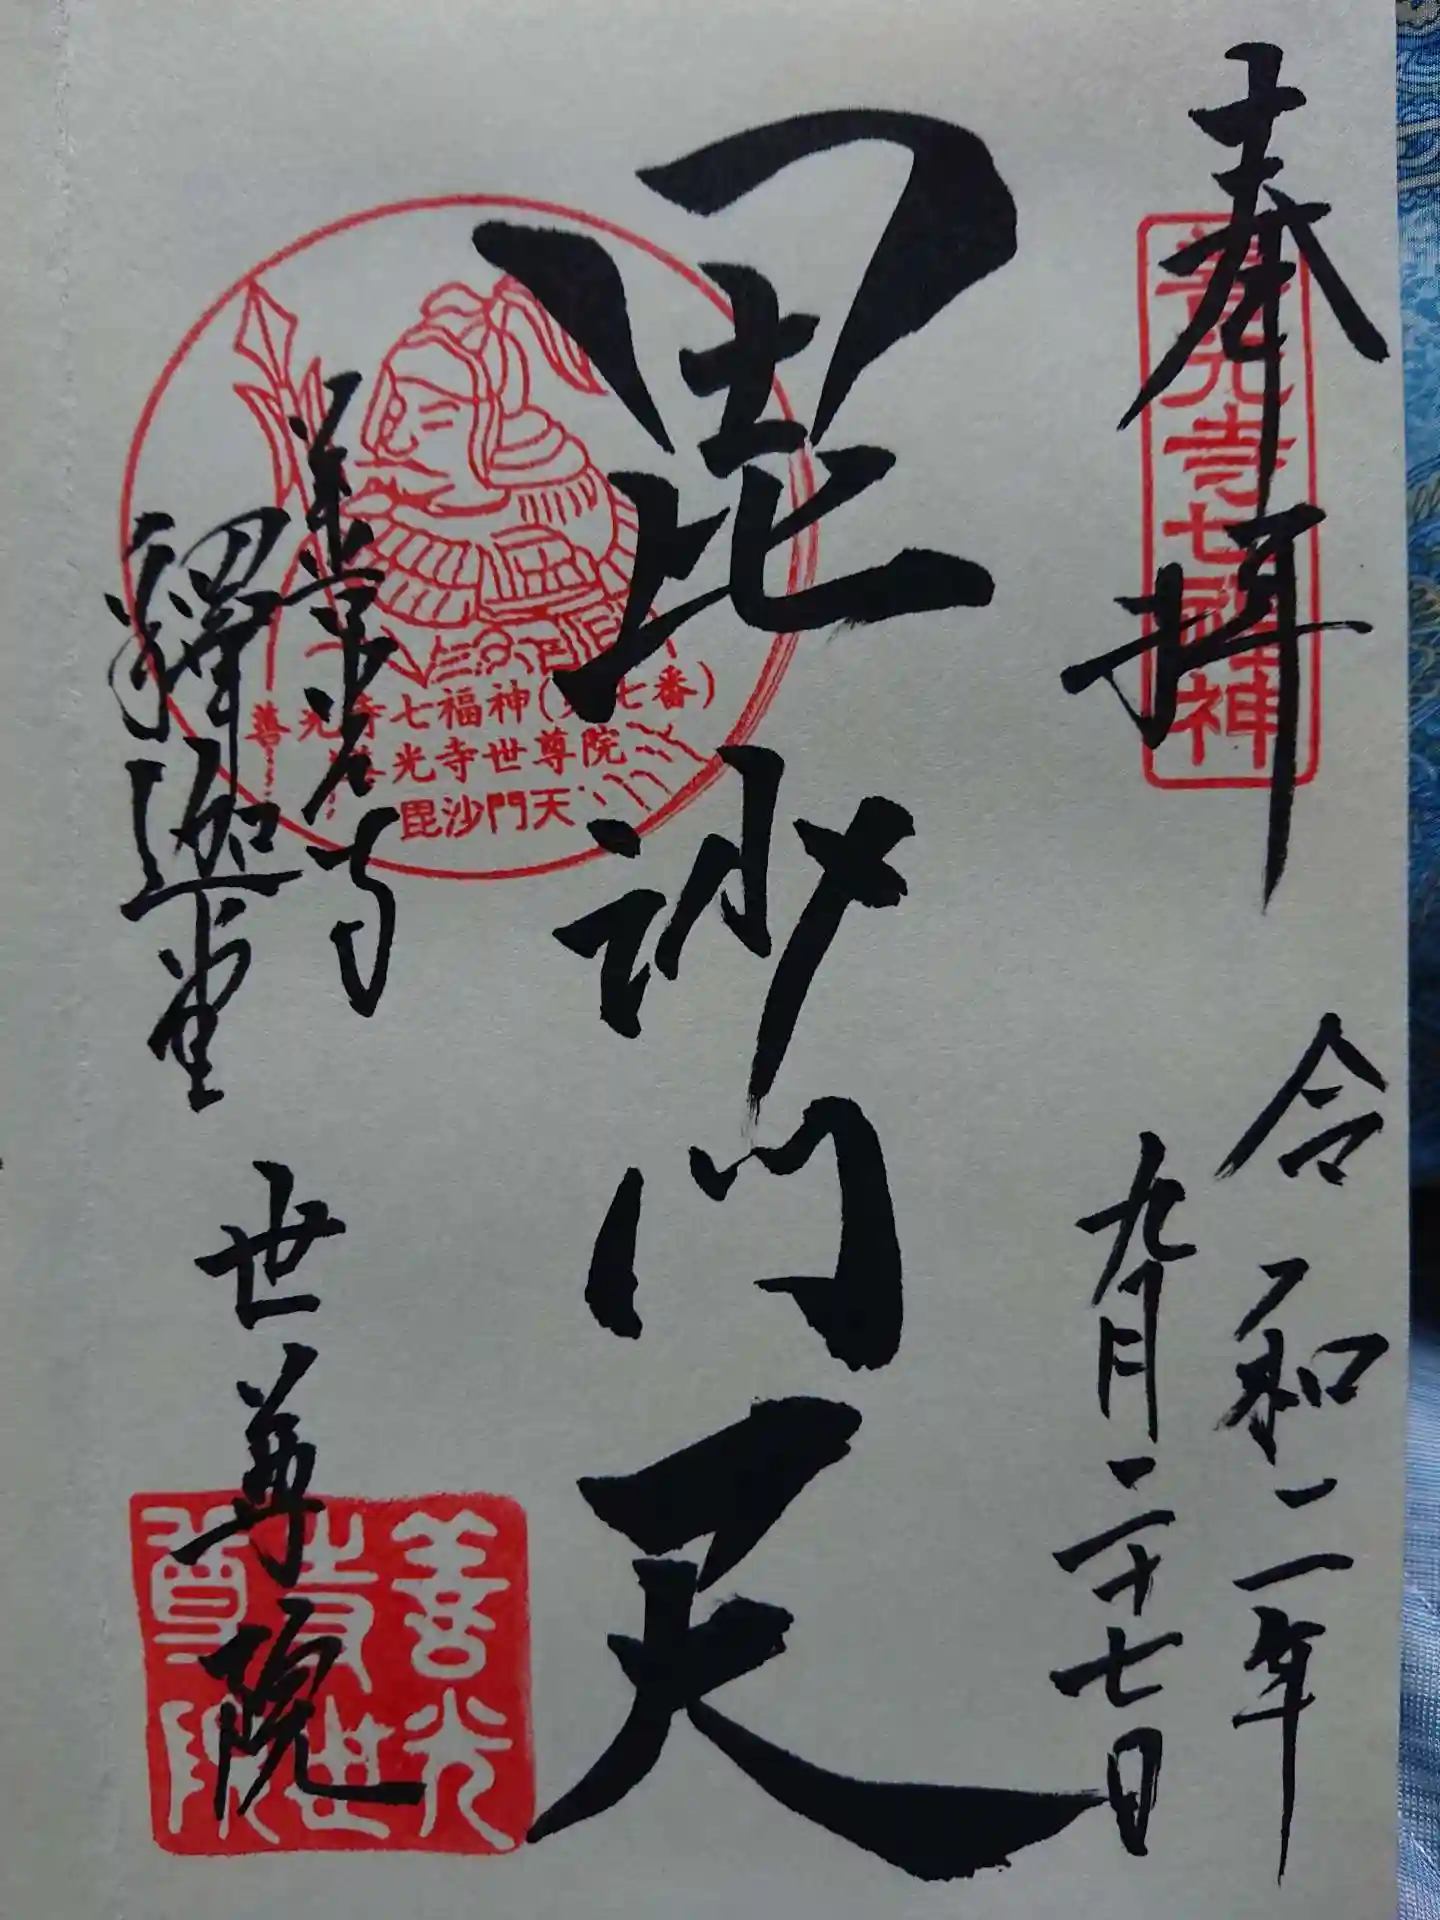 奉拝
善光寺七福神
令和二年
九月二十七日
毘沙門天
善光寺七福神(第七番)
善光寺世尊院
毘沙門天
善光寺
釋迦堂
世尊院
善光
寺世
尊院